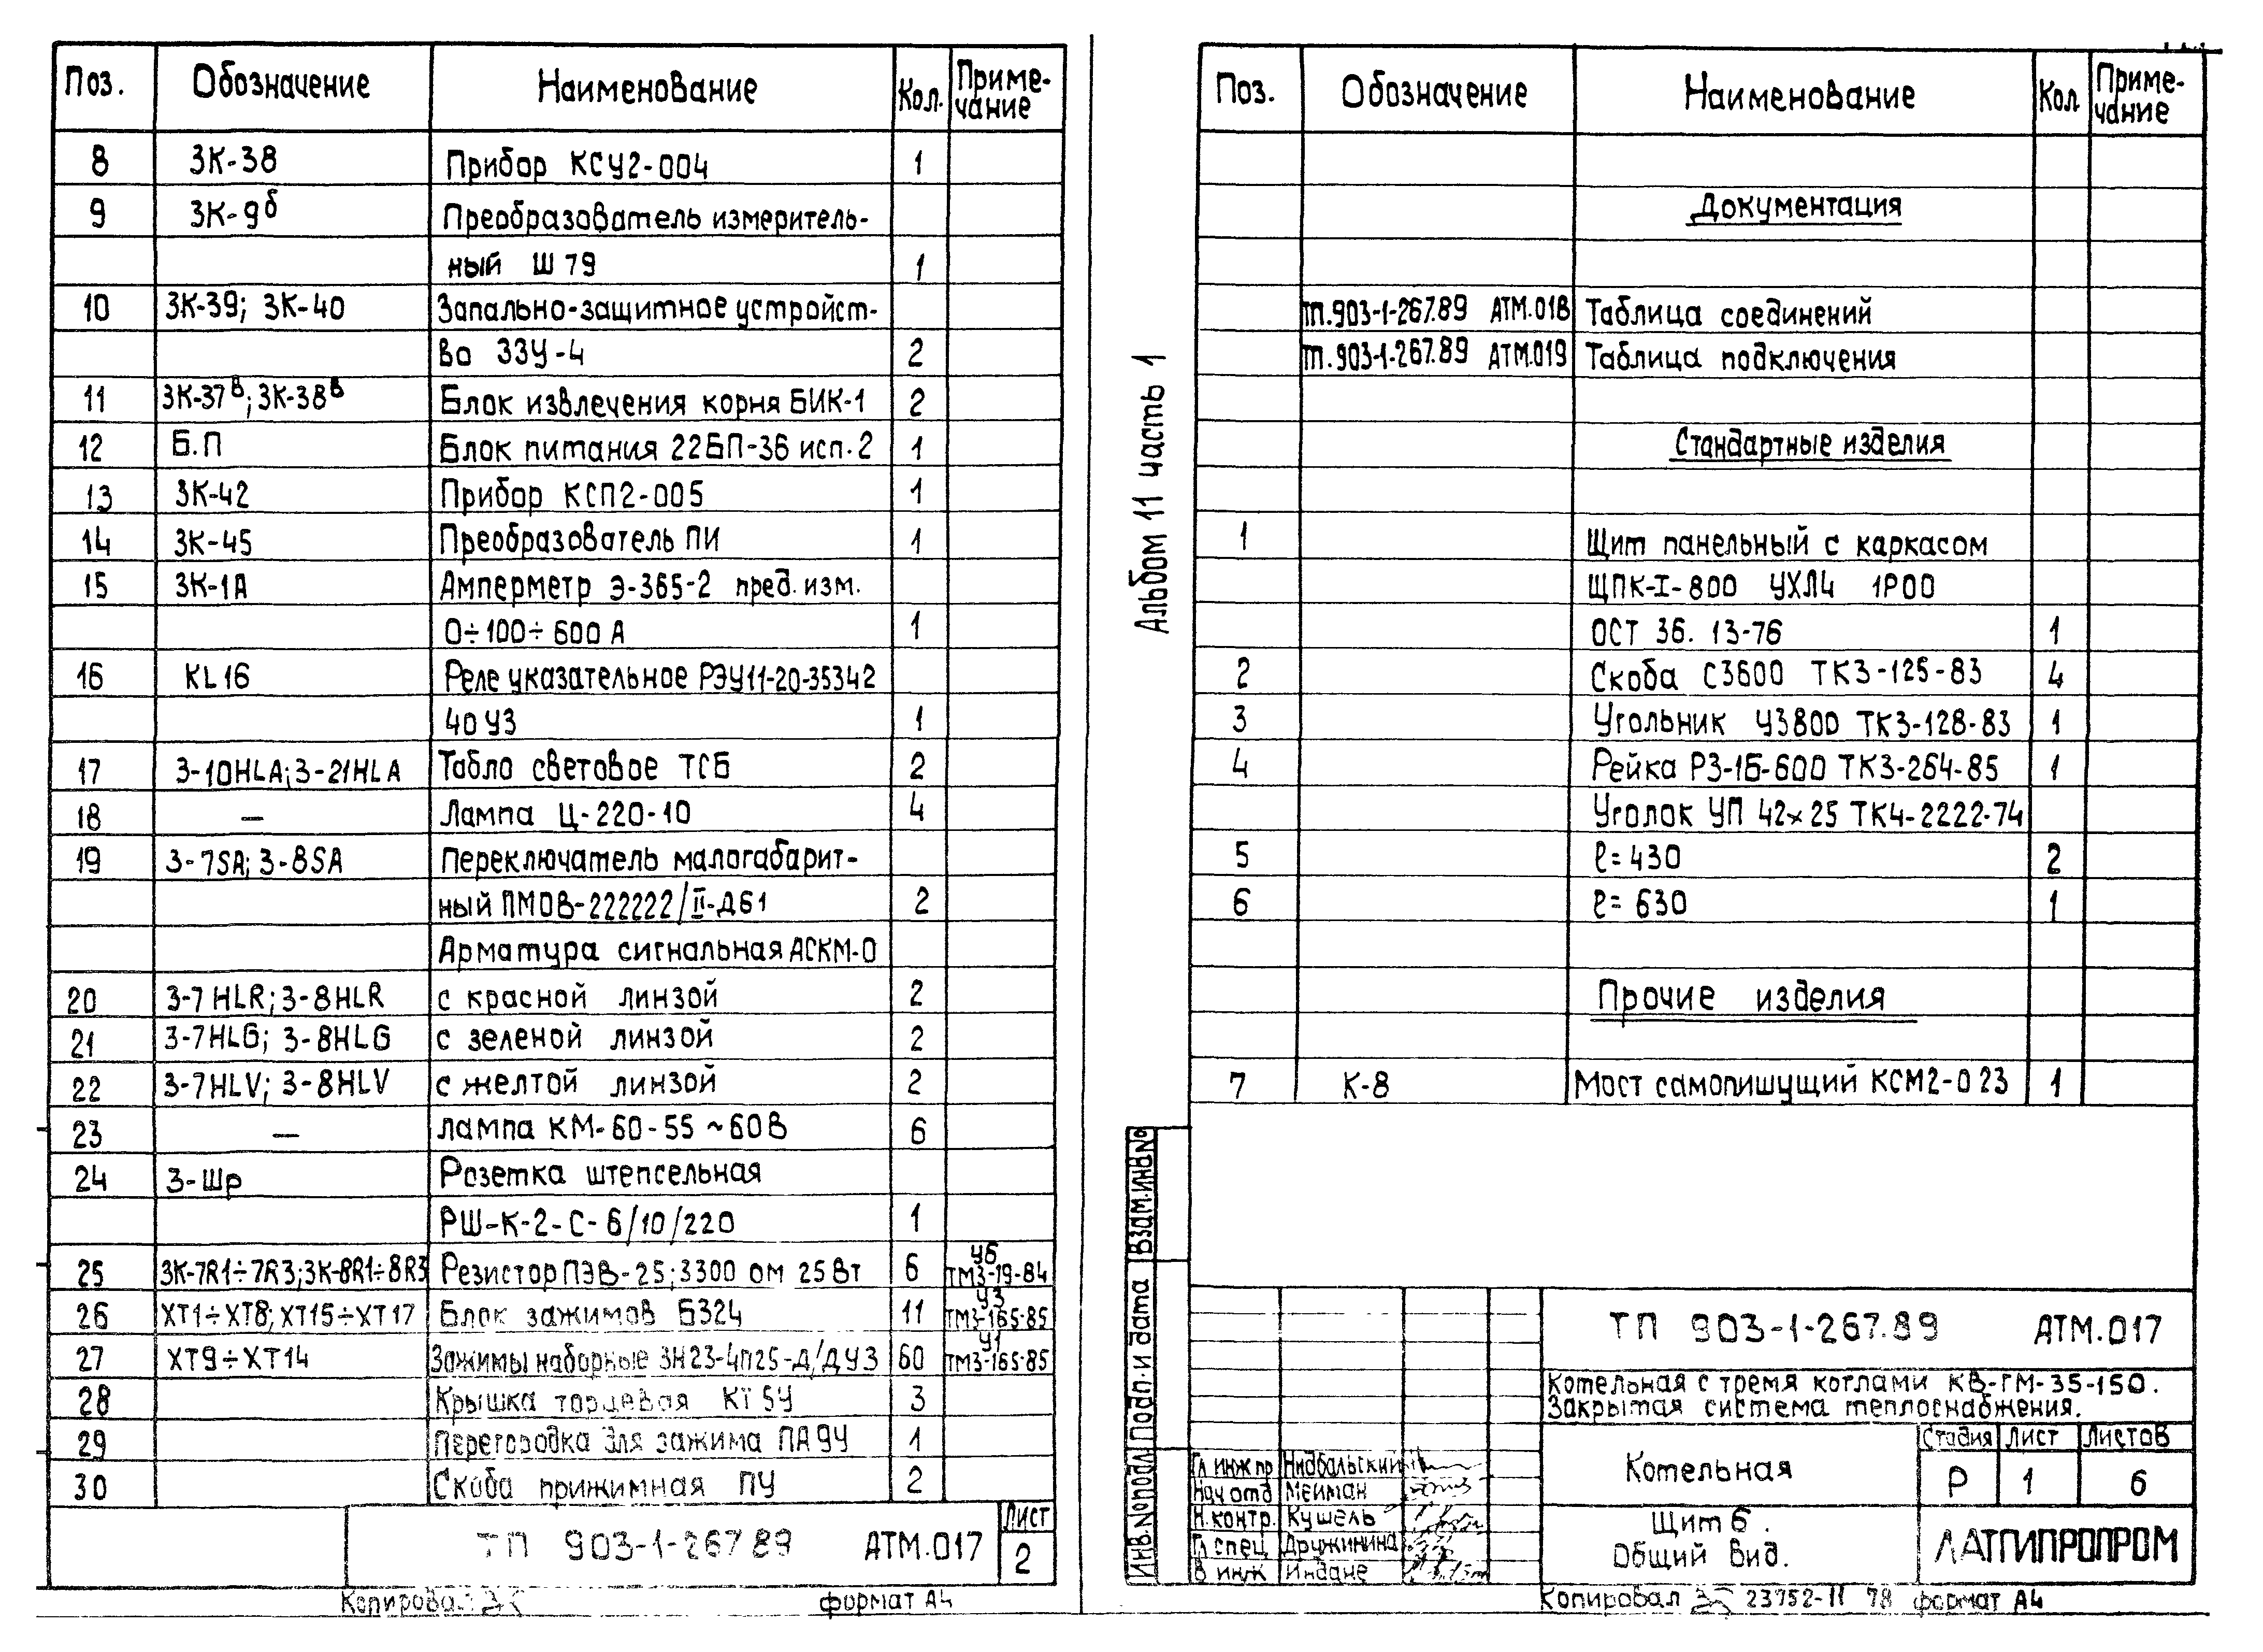 Поз. Обозначение Наименование Кол. Приме-
чание
8 3К-38 Прибор КСУ2-004 1
9 3К-9б Преобразователь измеритель-
ный Ш 79 1
10 3К-39; 3К-40 Запально-защитное устройст-
во ЗЗУ-4 2
11 3К-37в; 3К-38в Блок извлечения корня БИК-1 2
12 Б.П Блок питания 22БП-36 исп.2 1
13 3К-42 Прибор КСП2-005 1
14 3К-45 Преобразователь ПИ 1
15 3К-1А Амперметр Э-365-2 пред. изм.
0÷100÷600 А 1
16 KL16 Реле указательное РЭУ11-20-35342
40 У3 1
17 3-10HLA; 3-21HLA Табло световое ТСБ 2
18 — Лампа Ц-220-10 4
19 3-7SA; 3-8SA Переключатель малогабарит-
ный ПМОВ-222222/II-Д61 2
Арматура сигнальная АСКМ-0
20 3-7HLR; 3-8HLR с красной линзой 2
21 3-7HLG; 3-8HLG с зеленой линзой 2
22 3-7HLV; 3-8HLV с желтой линзой 2
23 — лампа КМ-60-55 ~60В 6
24 3-Шр Розетка штепсельная
РШ-К-2-С-6/10/220 1
25 3К-7R1÷7R3; 3К-8R1÷8R3 Резистор ПЭВ-25; 3300 ом 25 Вт 6 У6
ТМ3-19-84
26 XT1÷XT8; XT15÷XT17 Блок зажимов Б324 11 У3
ТМ3-165-85
27 XT9÷XT14 Зажимы наборные ЗН23-4П25-Д/ДУ3 60 У1
ТМ3-165-85
28 Крышка торцевая КТ5У 3
29 Перегородка для зажима ПА9У 1
30 Скоба прижимная ПУ 2
ТП 903-1-267.89 АТМ.017 Лист
2
Копировал формат А4
Альбом 11 часть 1
Поз. Обозначение Наименование Кол Приме-
чание
Документация
тп.903-1-267.89 АТМ.018 Таблица соединений
тп.903-1-267.89 АТМ.019 Таблица подключения
Стандартные изделия
1 Щит панельный с каркасом
ЩПК-I-800 УХЛ4 1Р00
ОСТ 36. 13-76 1
2 Скоба С3600 ТК3-125-83 4
3 Угольник У3800 ТК3-128-83 1
4 Рейка Р3-1Б-600 ТК3-264-85 1
Уголок УП 42×25 ТК4-2222-74
5 ℓ=430 2
6 ℓ=630 1
Прочие изделия
7 К-8 Мост самопишущий КСМ2-023 1
Взам.инв№
Подп. и дата
Инв.№подл
ТП 903-1-267.89 АТМ.017
Котельная с тремя котлами КВ-ГМ-35-150.
Закрытая система теплоснабжения.
Гл инж пр Нидбальский
Нач отд Мейман
Н.контр. Кушель
Гл спец Дружинина
В инж Индане
Котельная
Стадия Лист Листов
Р 1 6
Щит 6.
Общий вид.
ЛАТГИПРОПРОМ
Копировал 23752-11 78 формат А4